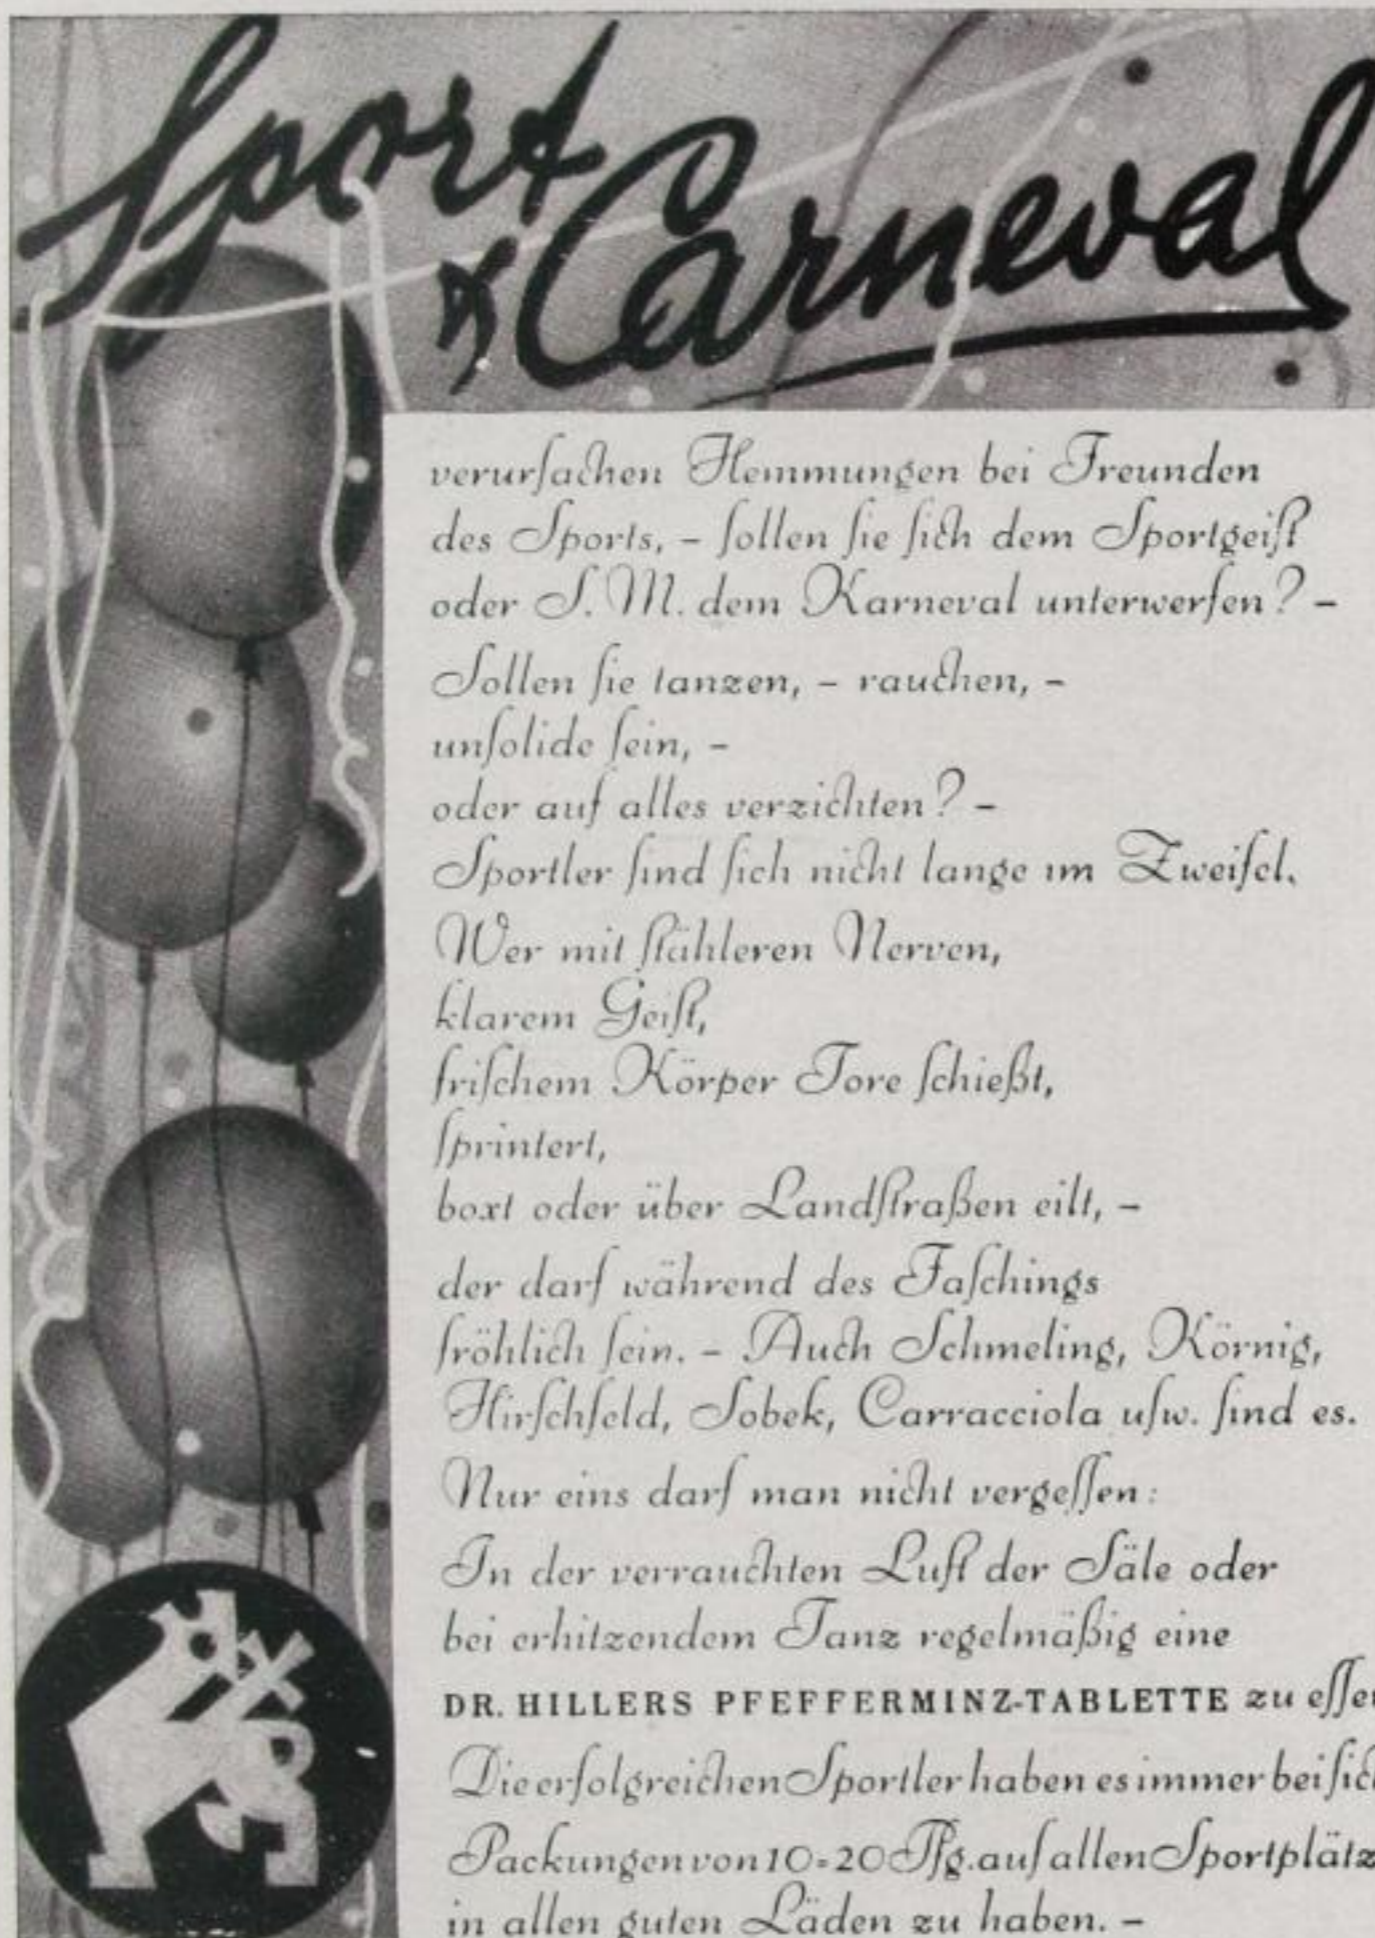 Sport
& Carneval
verurſachen Hemmungen bei Freunden
des Sports, – ſollen ſie ſich dem Sportgeiſt
oder S. M. dem Karneval unterwerfen? –
Sollen ſie tanzen, – rauchen, –
unſolide ſein, –
oder auf alles verzichten? –
Sportler ſind ſich nicht lange im Zweifel.
Wer mit ſtähleren Nerven,
klarem Geiſt,
friſchem Körper Tore ſchießt,
ſprintert,
boxt oder über Landſtraßen eilt, –
der darf während des Faſchings
fröhlich ſein. – Auch Schmeling, Körnig,
Hirſchfeld, Sobek, Carracciola uſw. ſind es.
Nur eins darf man nicht vergeſſen:
In der verrauchten Luft der Säle oder
bei erhitzendem Tanz regelmäßig eine
DR. HILLERS PFEFFERMINZ-TABLETTE zu eſſe
Die erfolgreichen Sportler haben es immer bei ſic
Packungen von 10=20 Pfg. auf allen Sportplätz
in allen guten Läden zu haben. –